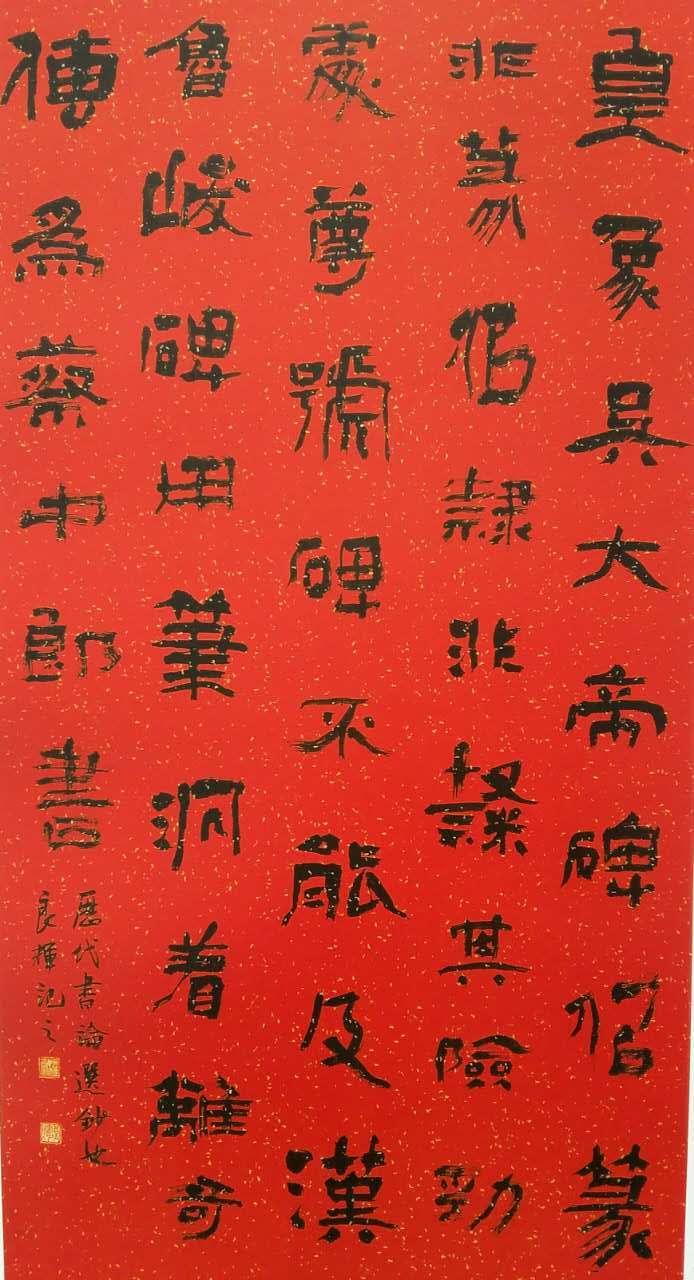 皇象吳大帝碑佀篆
非篆佀隸非隸其險勁
處尊號碑不能及漢
魯峻碑用筆洞着離奇
傳爲蔡中郎書
歷代書論選鈔也
良揮記之